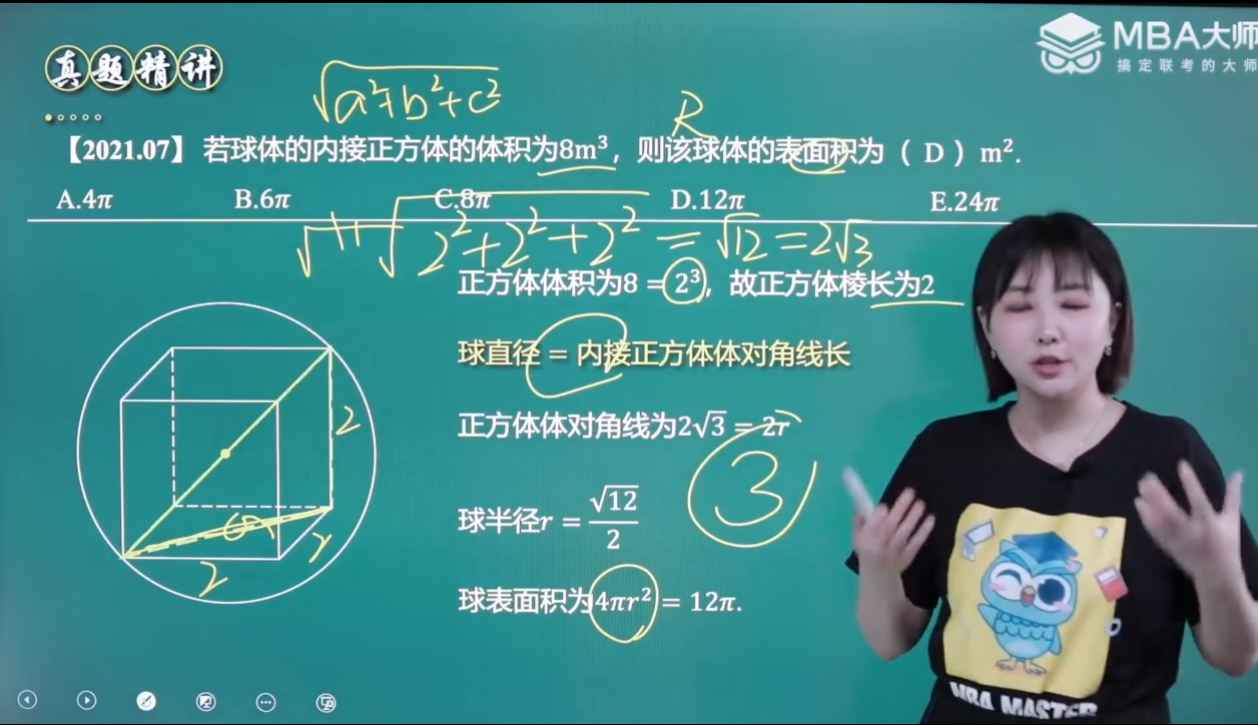 MBA大师
搞定联考的大师
真题精讲
√a²+b²+c²
R
【2021.07】若球体的内接正方体的体积为8m³，则该球体的表面积为（ D ）m².
A.4π B.6π C.8π D.12π E.24π
√2²+2²+2² = √12 = 2√3
正方体体积为8 = 2³，故正方体棱长为2
球直径 = 内接正方体体对角线长
正方体体对角线为2√3 = 2r
2
3
球半径r = √12/2
2
球表面积为4πr² = 12π.
MBA MASTER